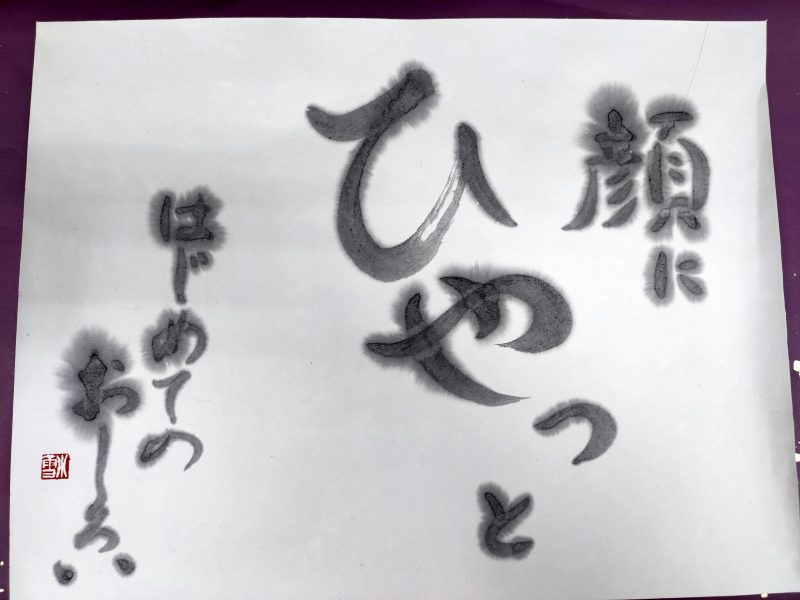 顔に
ひやっと
はじめての
おしろい